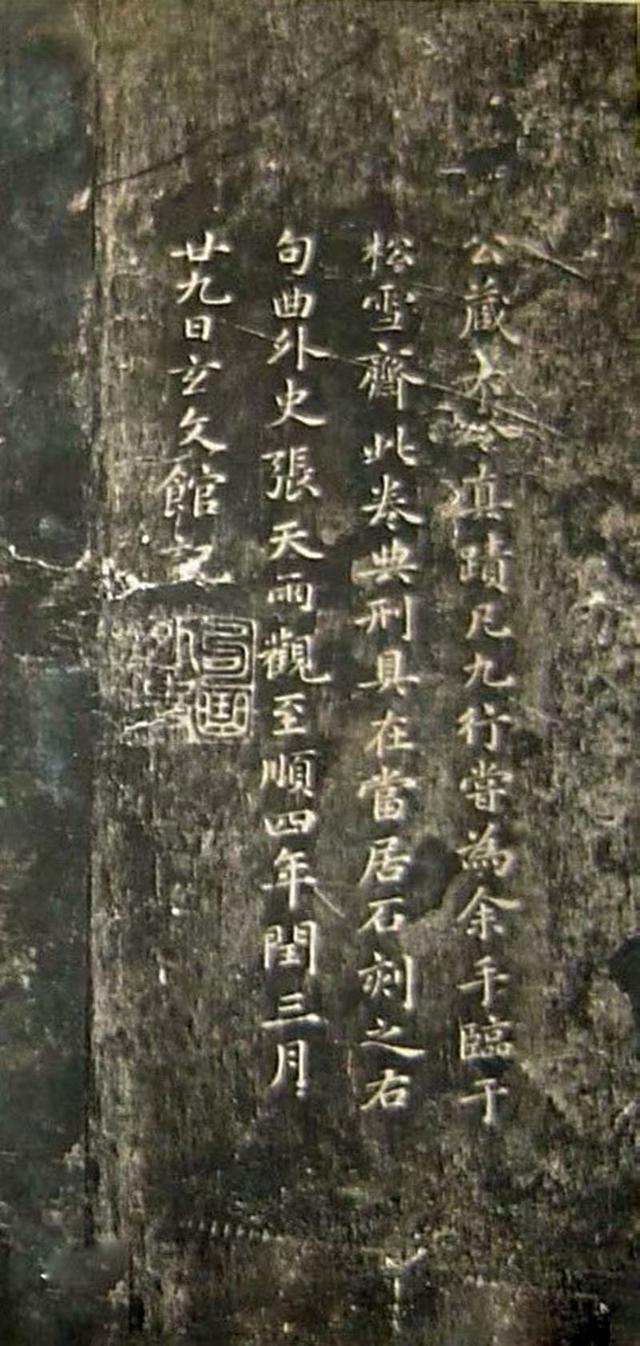 公藏大令真蹟凡九行嘗為余手臨于
松雪齋此卷典刑具在當居石刻之右
句曲外史張天雨觀至順四年閏三月
廿九日玄文館記